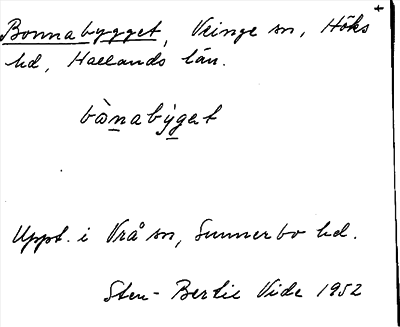 Bonnabygget, Veinge sn, Höks
hd, Hallands län.
bònabýget
Uppt. i Vrå sn, Sunnerbo hd.
Sten-Bertil Vide 1952